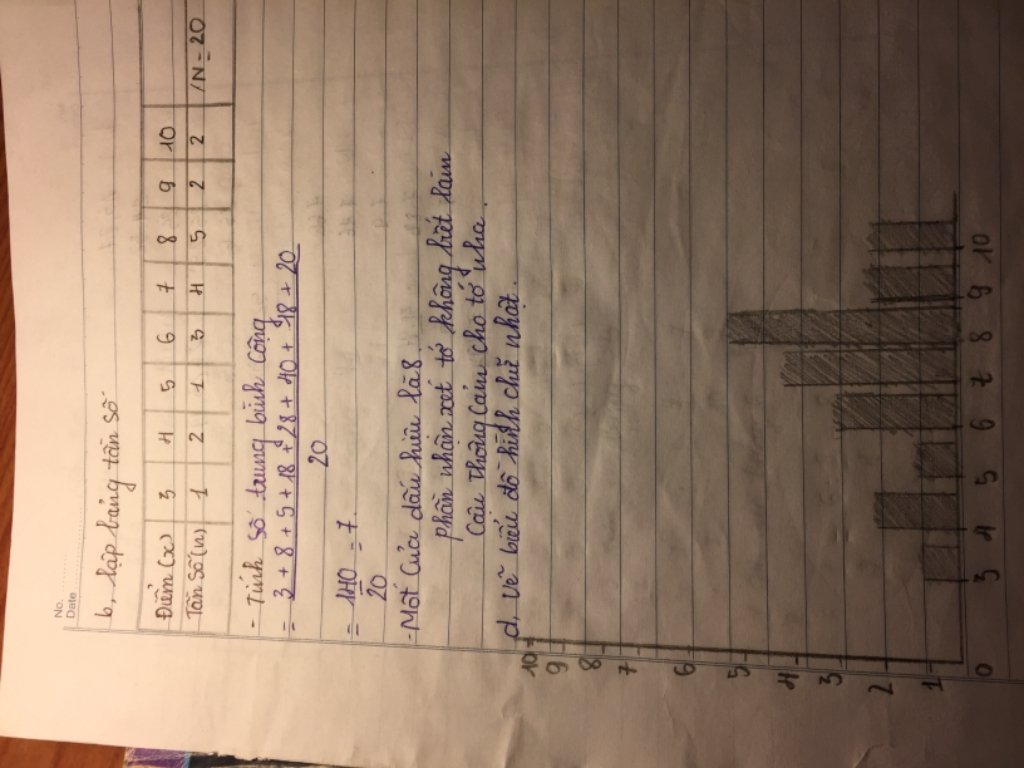 No.
Date
b, lập bảng tần số
Điểm (x) 3 4 5 6 7 8 9 10
Tần số (n) 1 2 1 3 4 5 2 2 N = 20
- Tính số trung bình cộng
= 3 + 8 + 5 + 18 + 28 + 40 + 18 + 20
20
= 140 = 7
20
- Mốt của dấu hiệu là 8
phần nhận xét tớ không biết làm
cậu thông cảm cho tớ nha.
d. Vẽ biểu đồ hình chữ nhật.
10
9
8
7
6
5
4
3
2
1
0 3 4 5 6 7 8 9 10